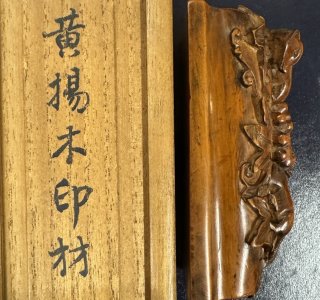 黄揚木印材